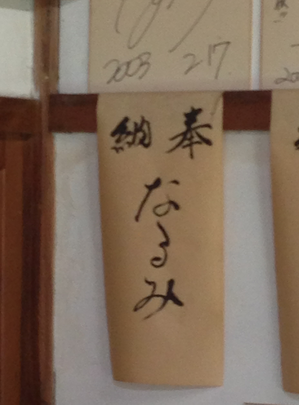 2003 2.17.
奉納
なるみ